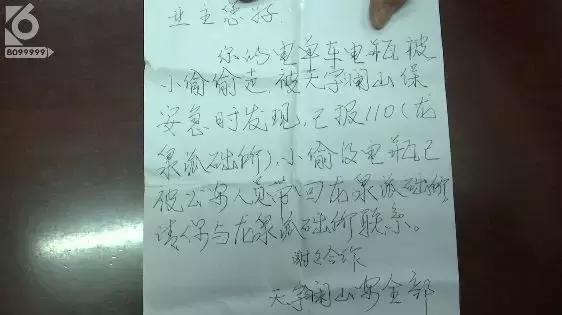 K6
8099999
业主您好
你的电单车电瓶被
小偷偷走,被天字阑山保
安急时发现,已报110(龙
泉派础所),小偷设电瓶已
被公安人员带回龙泉派础所
请你与龙泉派础所联系。
谢之合作
天字阑山安全部